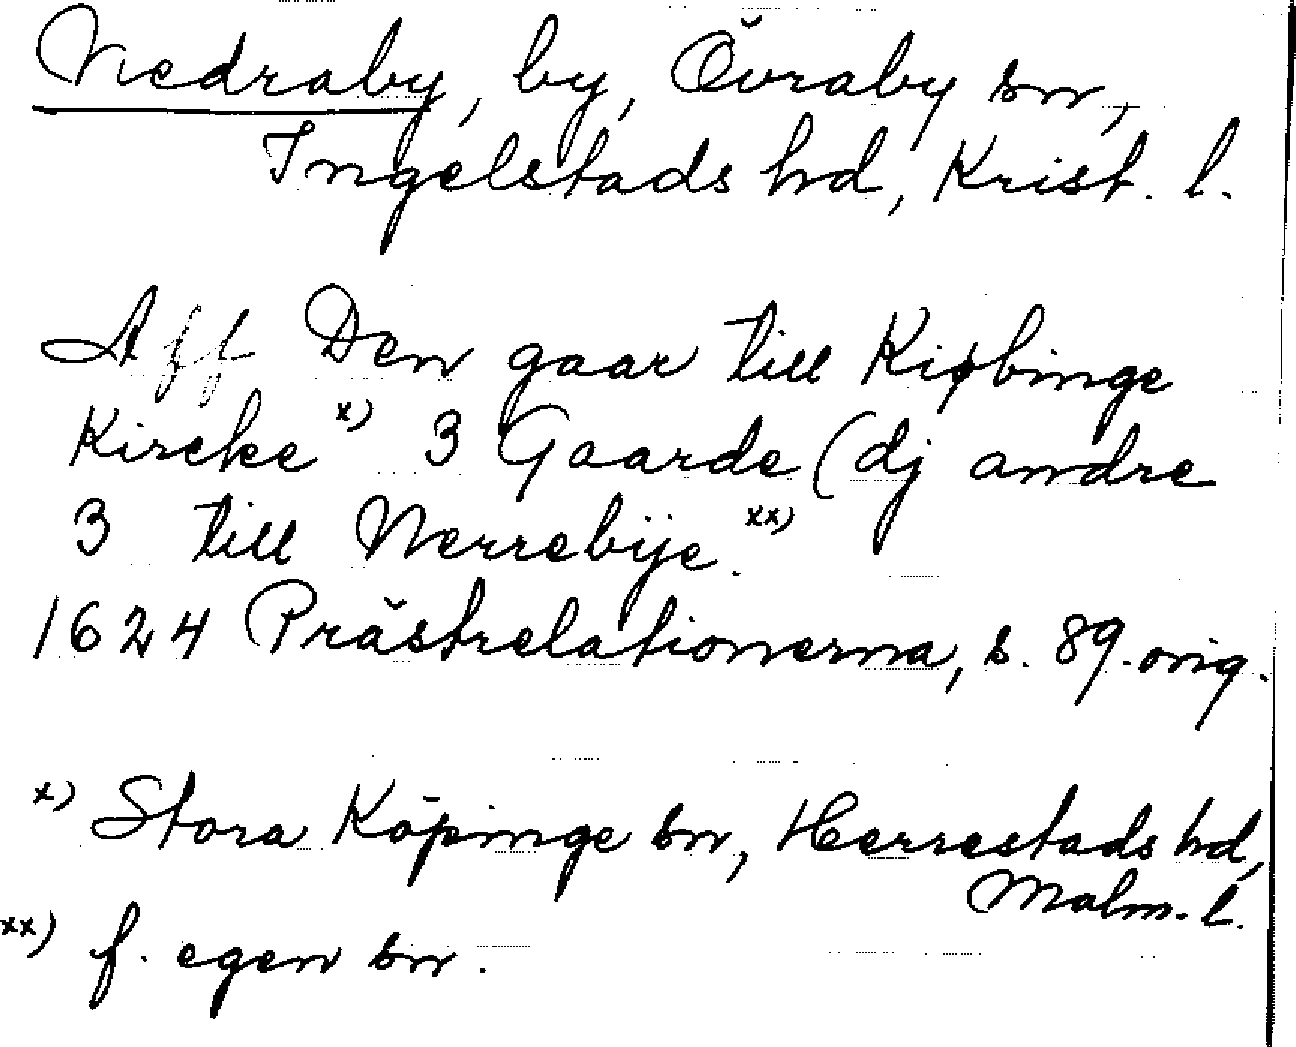 Nedraby, by, Övraby sn,
Ingelstads hd, Krist. l.
Aff Den gaar till Kiøbinge
Kircke x) 3 Gaarde (dj andre
3 till Nerrebije. xx)
1624 Prästrelationerna, s. 89. orig.
x) Stora Köpinge sn, Herrestads hd,
Malm. l.
xx) f. egen sn.